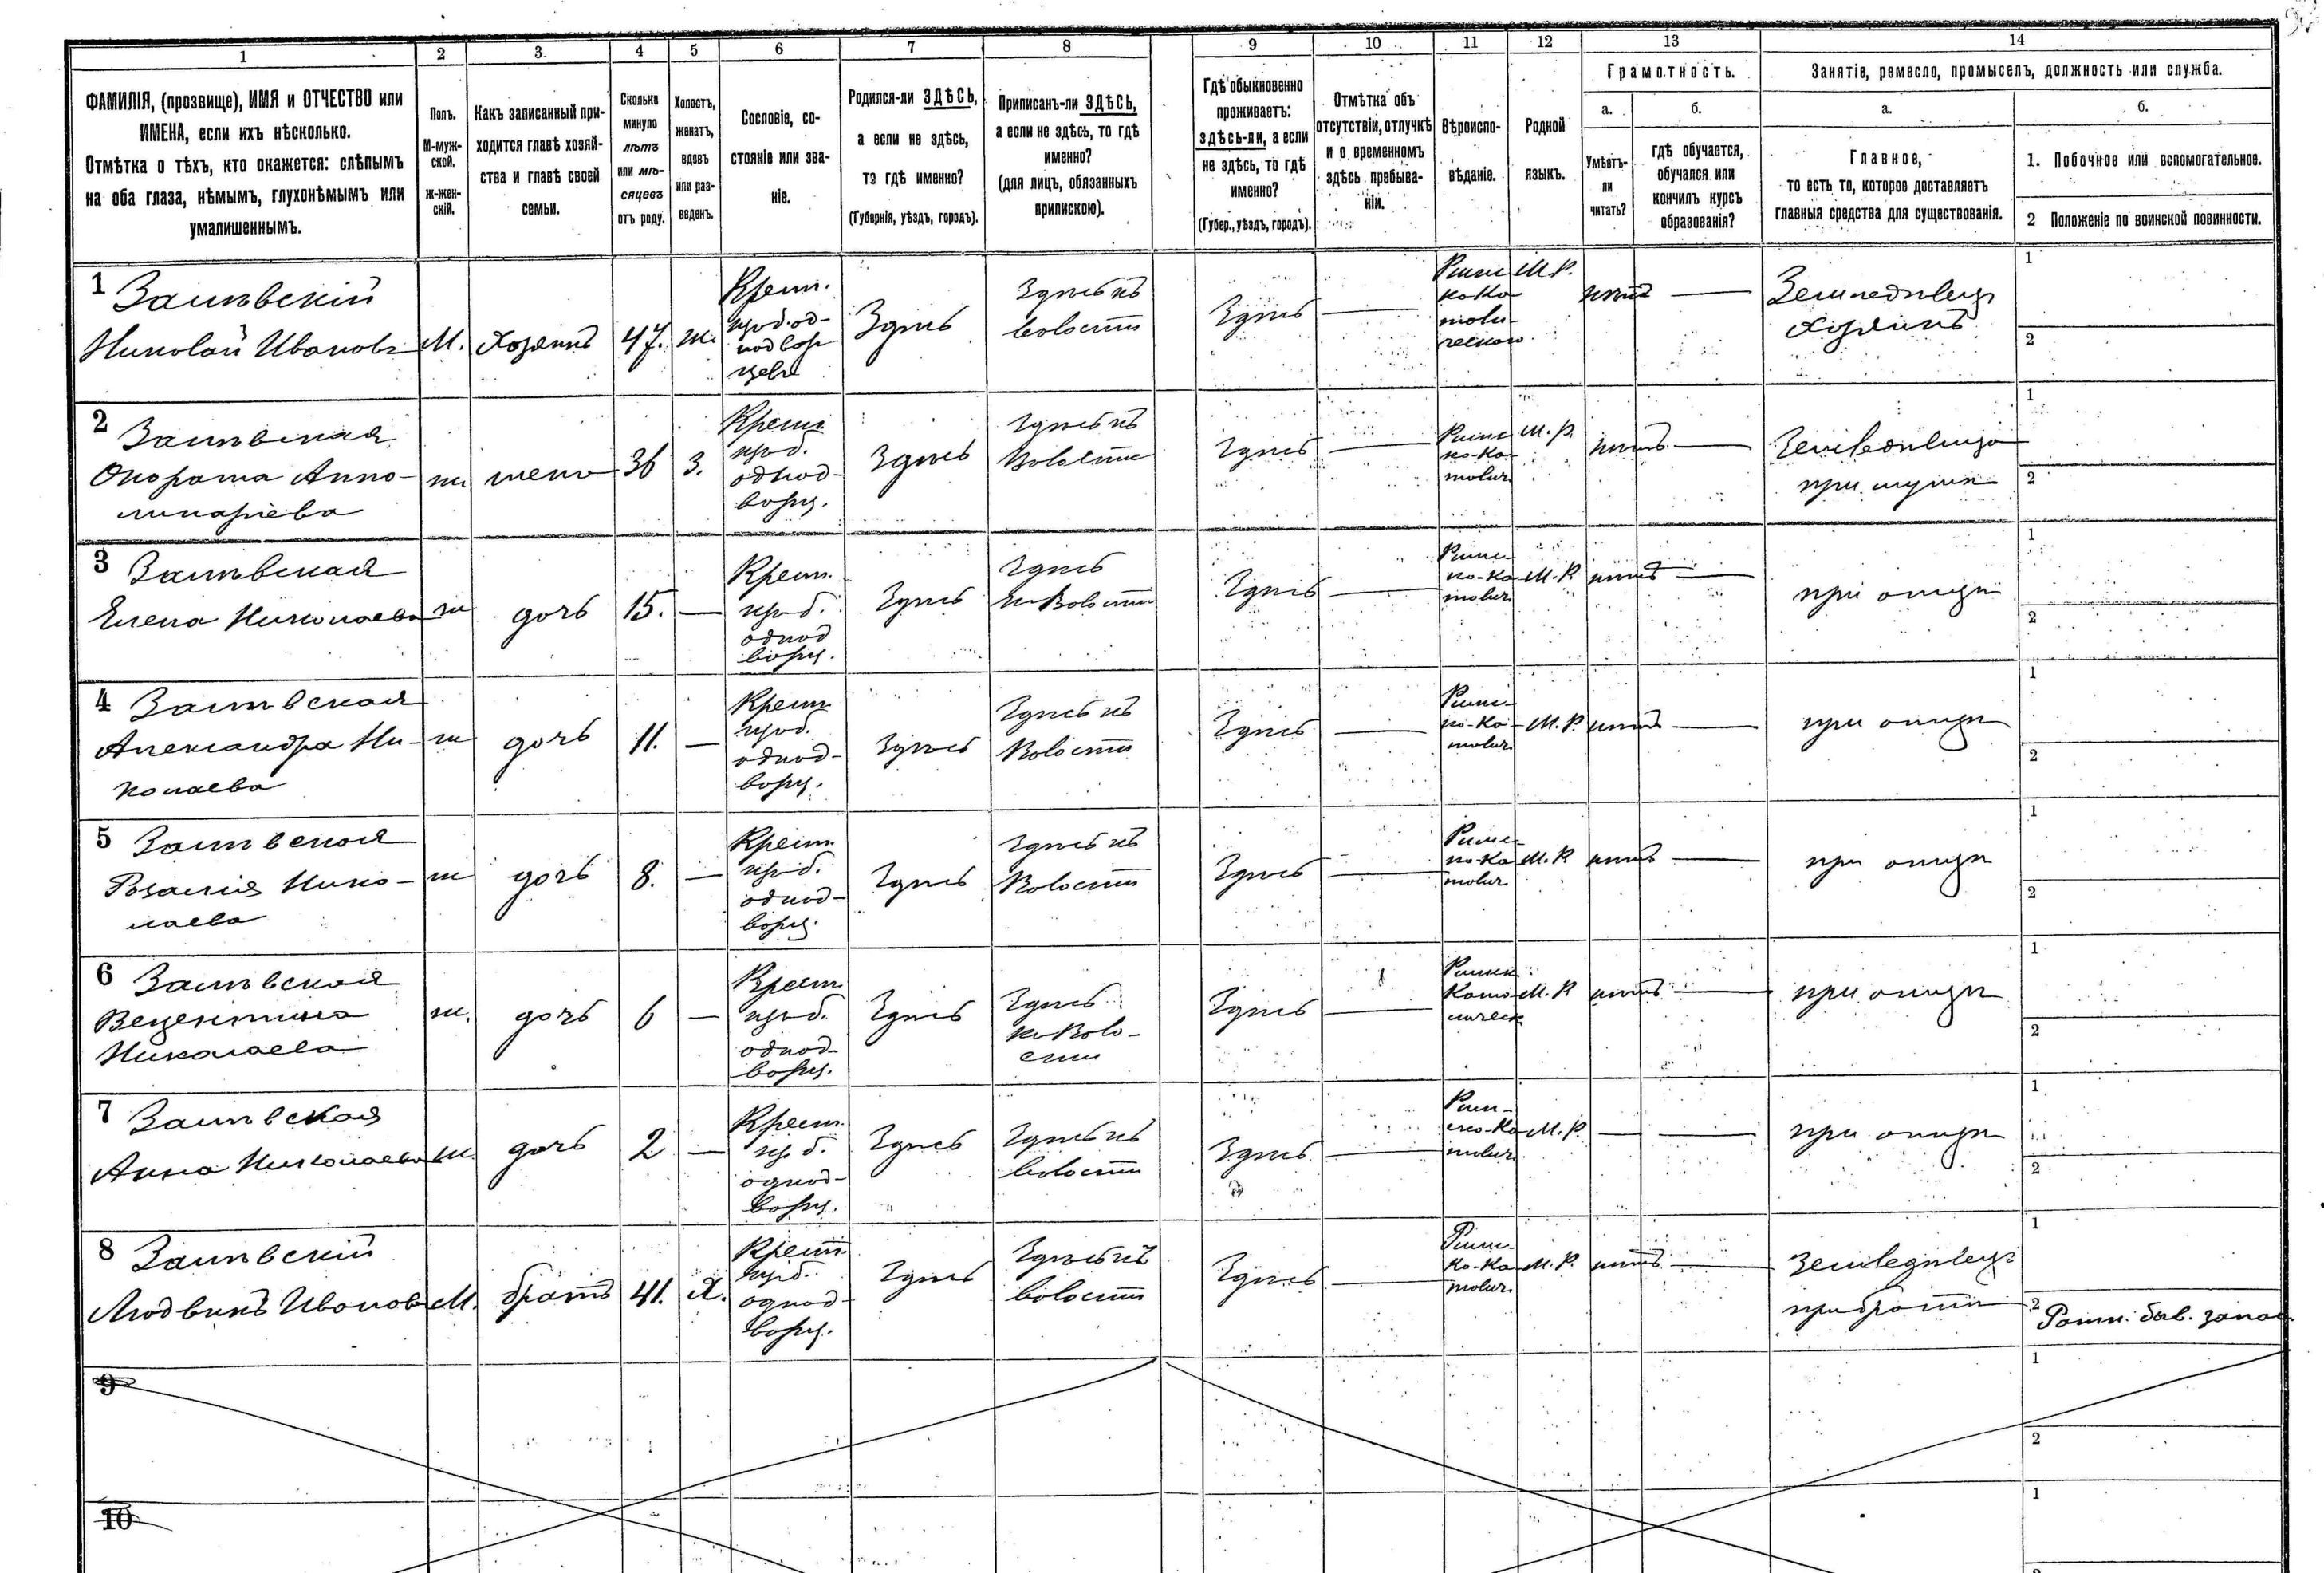 1 2 3. 4 5 6 7 8 9 10 11 12 13 14
ФАМИЛІЯ, (прозвище), ИМЯ и ОТЧЕСТВО или
ИМЕНА, если ихъ нѣсколько.
Отмѣтка о тѣхъ, кто окажется: слѣпымъ
на оба глаза, нѣмымъ, глухонѣмымъ или
умалишеннымъ.
Полъ.
М-муж-
ской.
ж-жен-
скій.
Какъ записанный при-
ходится главѣ хозяй-
ства и главѣ своей
семьи.
Сколько
минуло
лѣтъ
или мѣ-
сяцевъ
отъ роду.
Холостъ,
женатъ,
вдовъ
или раз-
веденъ.
Сословіе, со-
стояніе или зва-
ніе.
Родился-ли ЗДѢСЬ,
а если не здѣсь,
то гдѣ именно?
(Губернія, уѣздъ, городъ).
Приписанъ-ли ЗДѢСЬ,
а если не здѣсь, то гдѣ
именно?
(для лицъ, обязанныхъ
припискою).
Гдѣ обыкновенно
проживаетъ:
здѣсь-ли, а если
не здѣсь, то гдѣ
именно?
(Губер., уѣздъ, городъ).
Отмѣтка объ
отсутствіи, отлучкѣ
и о временномъ
здѣсь пребыва-
ніи.
Вѣроиспо-
вѣданіе.
Родной
языкъ.
Грамотность.
а.
Умѣетъ-
ли
читать?
б.
гдѣ обучается,
обучался или
кончилъ курсъ
образованія?
Занятіе, ремесло, промыселъ, должность или служба.
а.
Главное,
то есть то, которое доставляетъ
главныя средства для существованія.
б.
1. Побочное или вспомогательное.
2 Положеніе по воинской повинности.
1
Николай Ивановъ
М.
Хозяинъ
47.
ж.
Крест.
Здѣсь
Здѣсь къ
волости
Здѣсь
Римс
ко Ка
толи
ческого
М.Р.
нѣтъ
Земледѣлец
Хозяинъ
1
2
2
ж
жена
36
З.
Крест.
однод-
ворц.
Здѣсь
Здѣсь къ
Волости
Здѣсь
Римс
ко-Ка
толич.
М.Р.
нѣтъ
при мужѣ
1
2
3
Елена Николаева
ж
дочь
15.
Крест.
однод
ворц.
Здѣсь
Здѣсь
къ Волости
Здѣсь
Римс-
ко-Ка
толич.
М.Р
нѣтъ
при отцѣ
1
2
4
Александра Ни-
колаева
ж
дочь
11.
Крест.
однод-
ворц.
Здѣсь
Здѣсь къ
Волости
Здѣсь
Римс-
ко-Ка
толич.
М.Р.
нѣтъ
при отцѣ
1
2
5
Розалія Нико-
лаева
ж
дочь
8.
Крест.
однод-
ворц.
Здѣсь
Здѣсь къ
Волости
Здѣсь
Римс-
ко-Ка
толич.
М.Р
нѣтъ
при отцѣ
1
2
6
Николаева
ж.
дочь
6
Крест.
однод-
ворц.
Здѣсь
Здѣсь
къ Воло-
сти
Здѣсь
М.Р
нѣтъ
при отцѣ
1
2
7
Анна Николаева
ж.
дочь
2
Крест.
однод-
ворц.
Здѣсь
Здѣсь къ
волости
Здѣсь
Рим-
ско-Ка
толич.
М.Р.
при отцѣ
1
2
8
Людвикъ Ивановъ
М.
братъ
41.
Х.
Крест.
однод-
ворц.
Здѣсь
Здѣсь къ
волости
Здѣсь
Римс-
ко-Ка
толич.
М.Р.
нѣтъ
при братѣ
1
2 Ратн. быв. запас.
9
1
2
10
1